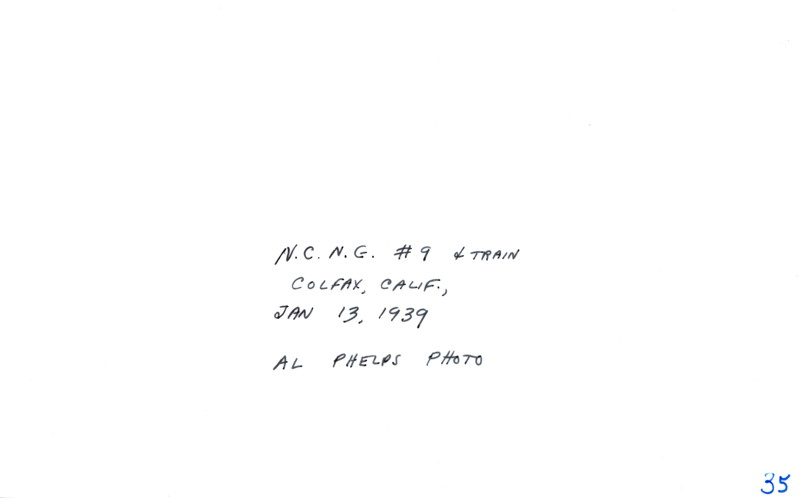 N.C. N.G. #9 & TRAIN
COLFAX, CALIF.,
JAN 13, 1939
AL PHELPS PHOTO
35